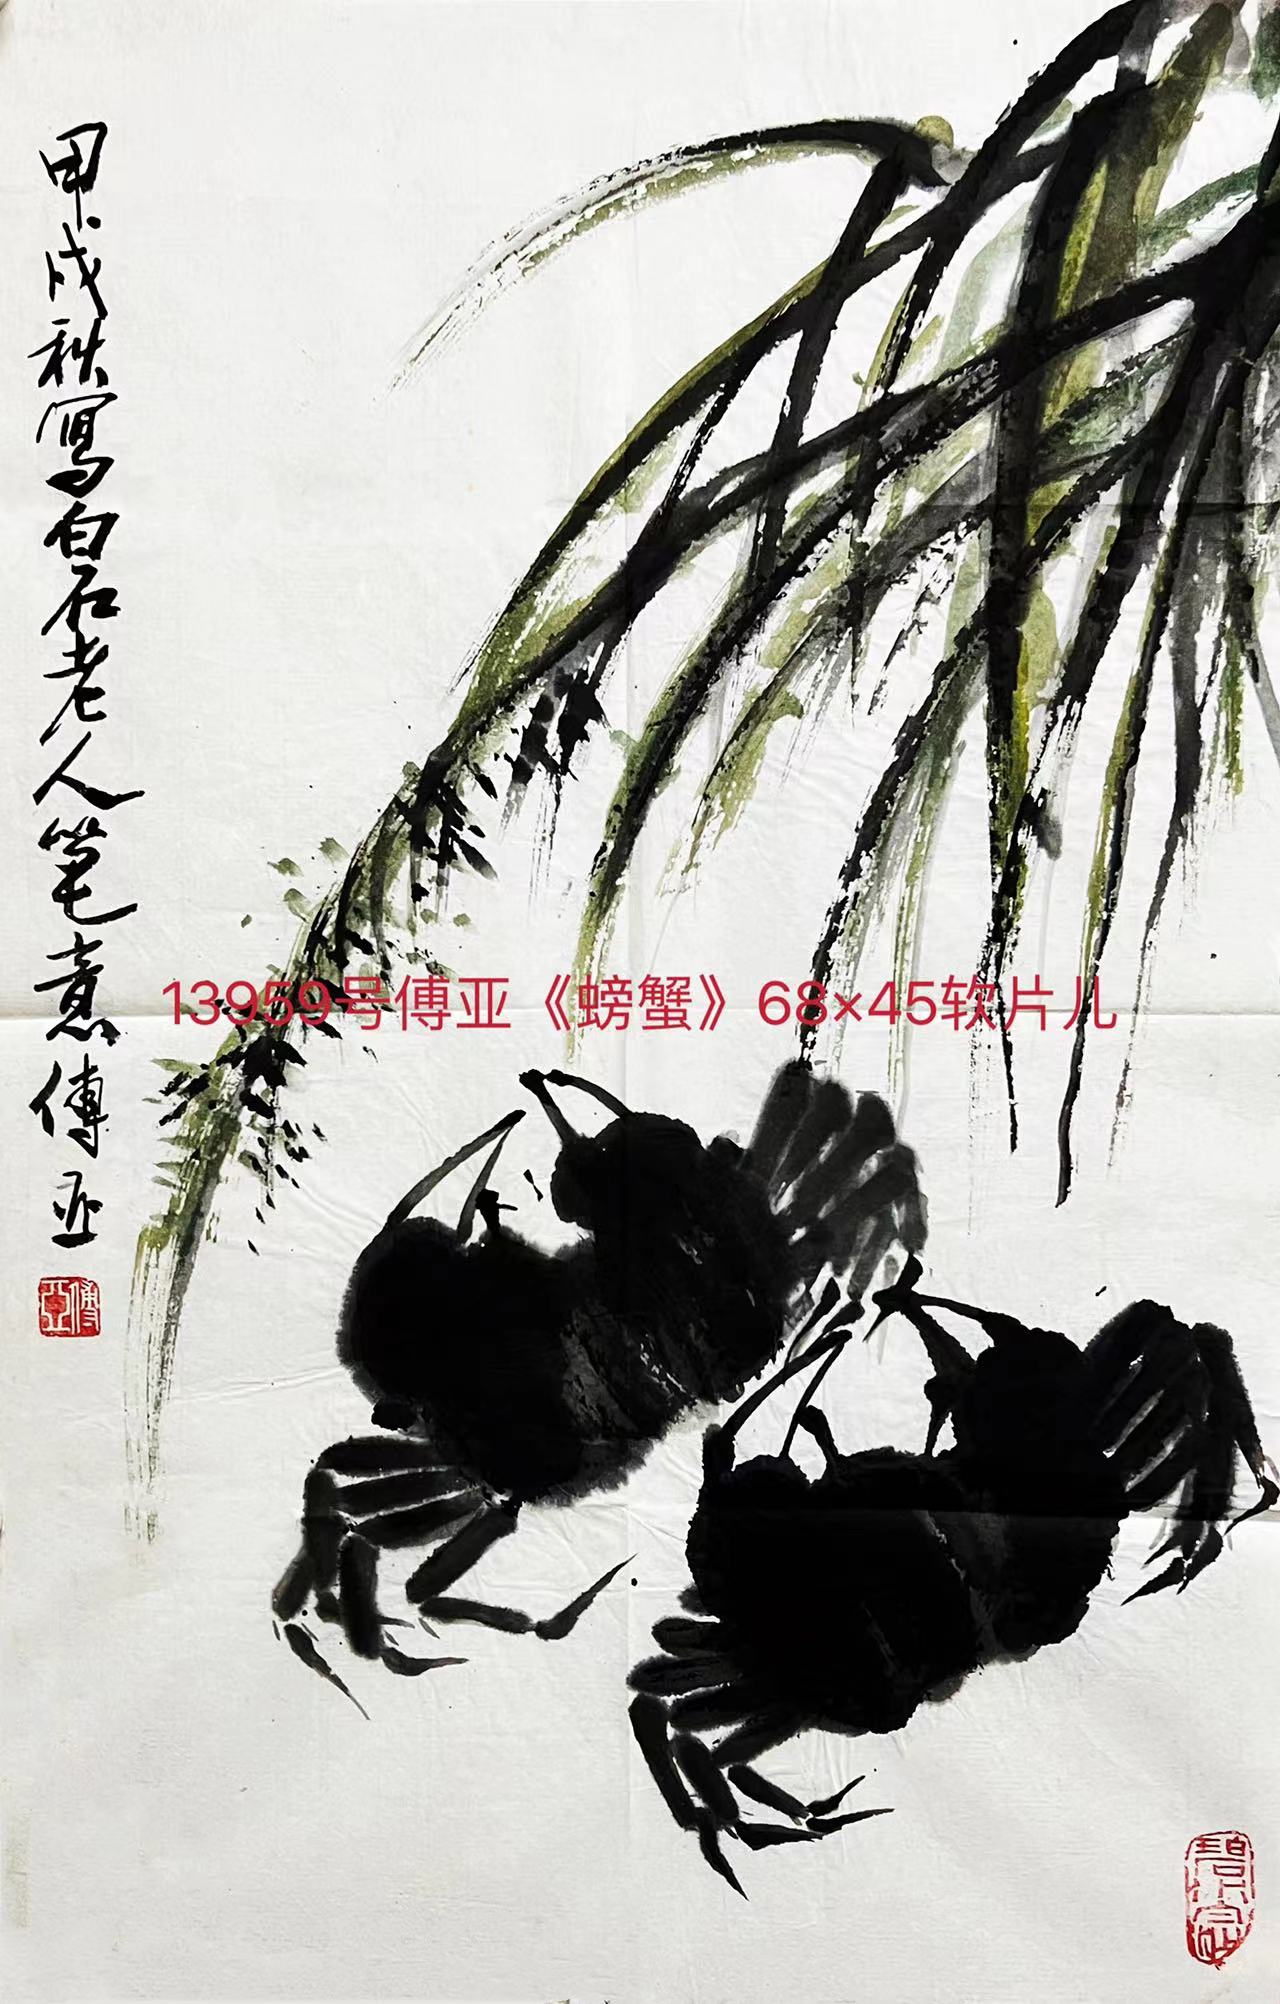 甲戌秋写白石老人笔意傅亚
13959号傅亚《螃蟹》68×45软片儿
傅亚